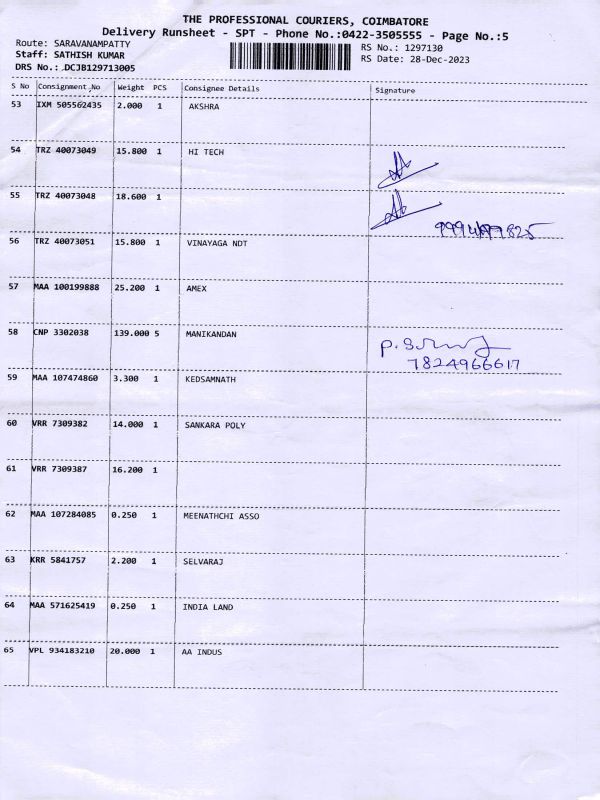 THE PROFESSIONAL COURIERS, COIMBATORE
Delivery Runsheet - SPT - Phone No.:0422-3505555 - Page No.:5
Route: SARAVANAMPATTY
Staff: SATHISH KUMAR
DRS No.: DCJB129713005
RS No.: 1297130
RS Date: 28-Dec-2023
S No Consignment No Weight PCS Consignee Details Signature
53 IXM 505562435 2.000 1 AKSHRA
54 TRZ 40073049 15.800 1 HI TECH
55 TRZ 40073048 18.600 1
56 TRZ 40073051 15.800 1 VINAYAGA NDT
57 MAA 100199888 25.200 1 AMEX
58 CNP 3302038 139.000 5 MANIKANDAN
7824966617
59 MAA 107474860 3.300 1 KEDSAMNATH
60 VRR 7309382 14.000 1 SANKARA POLY
61 VRR 7309387 16.200 1
62 MAA 107284085 0.250 1 MEENATHCHI ASSO
63 KRR 5841757 2.200 1 SELVARAJ
64 MAA 571625419 0.250 1 INDIA LAND
65 VPL 934183210 20.000 1 AA INDUS